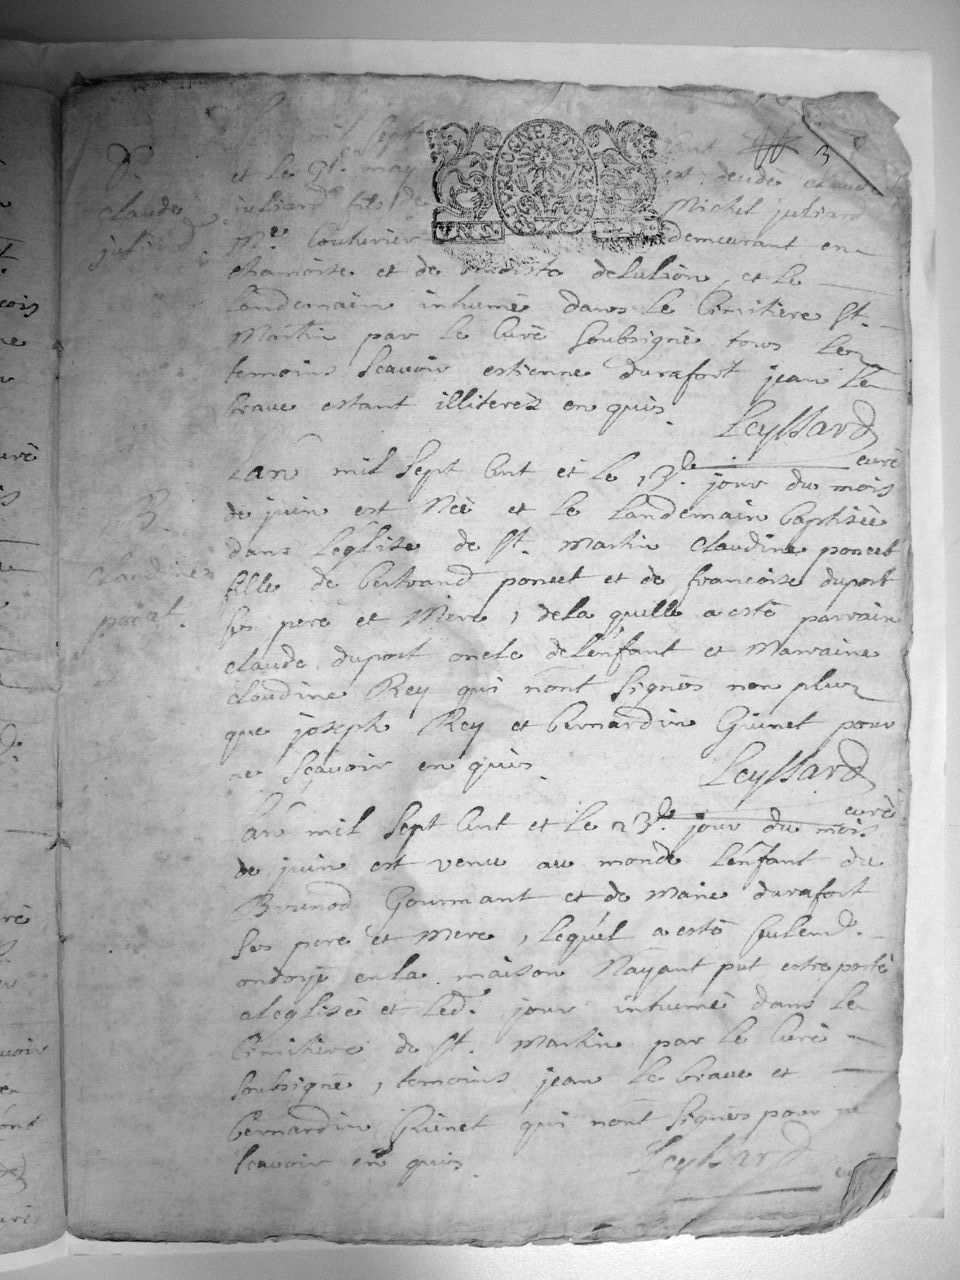 mil sept
3
D.
claude
juliard
et le 9e. may est decedé claude
juliard fils de Michel juliard
BOVRGOGNE ET BRESSE
Me. Couturier demeurant en
chamoise et de et le
Landemain inhumé dans le Cimitiere St.
Martin par le Curé soubsigné tous les
temoins scavoir estienne durafort jean le
brave estant illiterez enquis.
Leyssard
curé
Lan mil sept Cent et le 13e. jour du mois
de juin est Née et le Landemain baptisée
B.
Claudine
poncet.
dans L'eglise de St. Martin claudine poncet
fille de bertrand poncet et de francoise duport
ses pere et Mere, de la quelle a esté parrain
claude duport oncle de L'enfant et Marraine
claudine Rey qui n'ont signés non plus
que joseph Rey et bernardin Guinet pour
ne scavoir enquis.
Leyssard
curé
Lan mil sept Cent et le 23e. jour du mois
de juin est venu au monde L'enfant du
Brunod Gourmant et de Marie durafort
ses pere et Mere, lequel a esté seulemt.
ondoyé en la maison N'ayant put estre porté
a l'eglise et led. jour inhumé dans le
Cimitiere de St. Martin par le Curé
soubsigné, temoins jean le brave et
bernardin Guinet qui n'ont signés pour ne
scavoir enquis.
Leyssard
curé